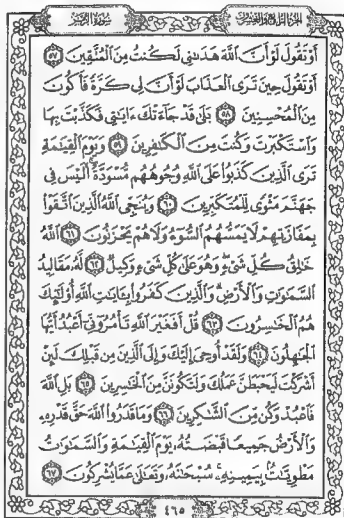 الجزء الرابع والعشرون سورة الزمر
أَوْ تَقُولَ لَوْ أَنَّ اللَّهَ هَدَىٰنِي لَكُنتُ مِنَ الْمُتَّقِينَ ٥٧
أَوْ تَقُولَ حِينَ تَرَى الْعَذَابَ لَوْ أَنَّ لِي كَرَّةً فَأَكُونَ
مِنَ الْمُحْسِنِينَ ٥٨ بَلَىٰ قَدْ جَاءَتْكَ ءَايَٰتِي فَكَذَّبْتَ بِهَا
وَاسْتَكْبَرْتَ وَكُنتَ مِنَ الْكَٰفِرِينَ ٥٩ وَيَوْمَ الْقِيَٰمَةِ
تَرَى الَّذِينَ كَذَبُوا عَلَى اللَّهِ وُجُوهُهُم مُّسْوَدَّةٌ أَلَيْسَ فِي
جَهَنَّمَ مَثْوًى لِّلْمُتَكَبِّرِينَ ٦٠ وَيُنَجِّي اللَّهُ الَّذِينَ اتَّقَوْا
بِمَفَازَتِهِمْ لَا يَمَسُّهُمُ السُّوءُ وَلَا هُمْ يَحْزَنُونَ ٦١ اللَّهُ
خَٰلِقُ كُلِّ شَيْءٍ وَهُوَ عَلَىٰ كُلِّ شَيْءٍ وَكِيلٌ ٦٢ لَّهُ مَقَالِيدُ
السَّمَٰوَٰتِ وَالْأَرْضِ وَالَّذِينَ كَفَرُوا بِـَٔايَٰتِ اللَّهِ أُولَٰئِكَ
هُمُ الْخَٰسِرُونَ ٦٣ قُلْ أَفَغَيْرَ اللَّهِ تَأْمُرُونِّي أَعْبُدُ أَيُّهَا
الْجَٰهِلُونَ ٦٤ وَلَقَدْ أُوحِيَ إِلَيْكَ وَإِلَى الَّذِينَ مِن قَبْلِكَ لَئِنْ
أَشْرَكْتَ لَيَحْبَطَنَّ عَمَلُكَ وَلَتَكُونَنَّ مِنَ الْخَٰسِرِينَ ٦٥ بَلِ اللَّهَ
فَاعْبُدْ وَكُن مِّنَ الشَّٰكِرِينَ ٦٦ وَمَا قَدَرُوا اللَّهَ حَقَّ قَدْرِهِ
وَالْأَرْضُ جَمِيعًا قَبْضَتُهُ يَوْمَ الْقِيَٰمَةِ وَالسَّمَٰوَٰتُ
مَطْوِيَّٰتٌ بِيَمِينِهِ سُبْحَٰنَهُ وَتَعَٰلَىٰ عَمَّا يُشْرِكُونَ ٦٧
٤٦٥